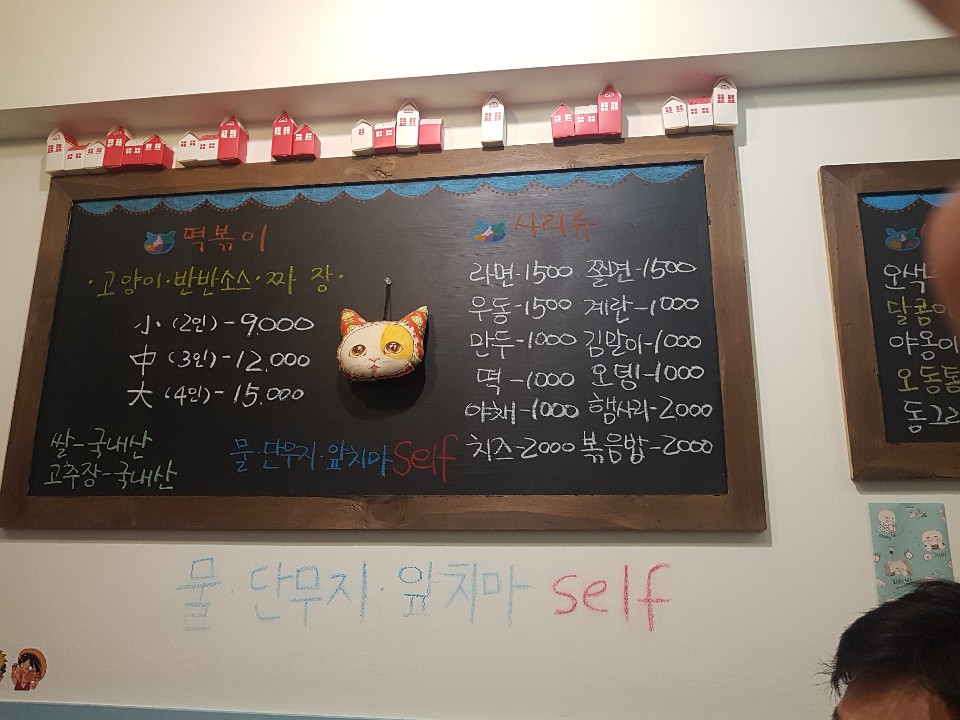 떡볶이
·고양이·반반소스·짜장·
小 (2인)-9.000
中 (3인)-12.000
大 (4인)-15.000
쌀-국내산
고추장-국내산
물·단무지·앞치마 self
사리류
라면-1500 쫄면-1500
우동-1500 계란-1000
만두-1000 김말이-1000
떡-1000 오뎅-1000
야채-1000 햄사리-2000
치즈-2000 볶음밥-2000
오색
달콤
야옹이
오동통
동그
물·단무지·앞치마 self